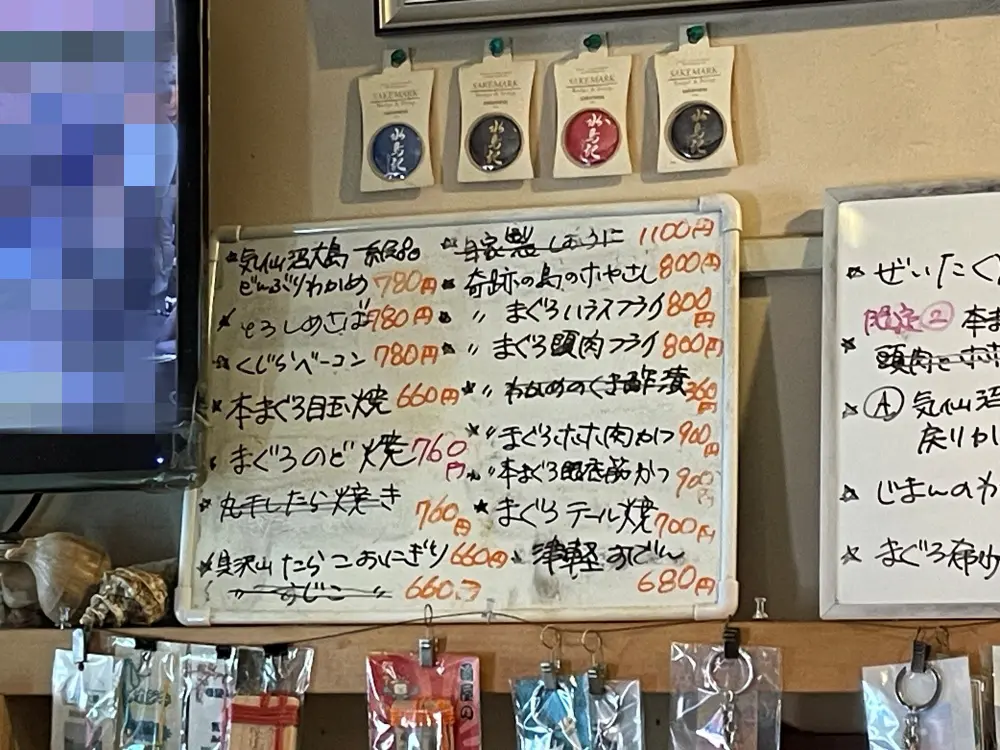 SAKEMARK
SAKEMARK
SAKEMARK
SAKEMARK
水鳥記
水鳥記
水鳥記
水鳥記
★気仙沼大島
どんぶりわかめ 780円
★とろしめさば 780円
★くじらベーコン 780円
★本まぐろ目玉焼 660円
★まぐろのど焼 760円
★丸干したら焼き 760円
★具沢山たらこおにぎり 660円
〃 すじこ 〃 660円
★自家製しおうに 1100円
★奇跡の島のホヤさし 800円
★〃 まぐろハラスフライ 800円
★〃 まぐろ頭肉フライ 800円
★〃 わかめのくき酢漬 360円
★〃まぐろホホ肉かつ 900円
★〃本まぐろ眼底筋かつ 900円
★まぐろテール焼 700円
★津軽おでん 680円
★ぜいたく
限定② 本ま
★頭肉とホホ
★Ⓐ気仙沼
戻りか
★じまんのか
★まぐろ